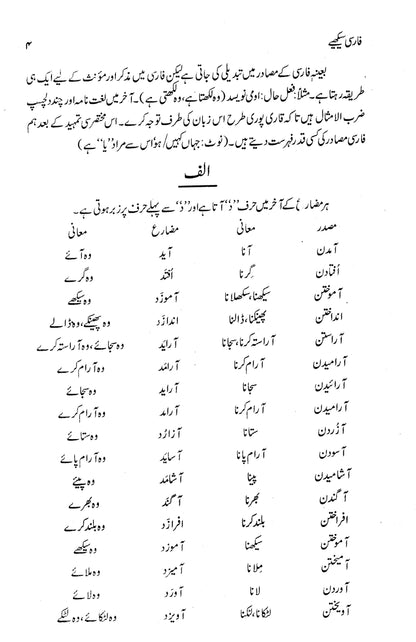 فارسی سیکھیے ۴
بعینہٖ فارسی کے مصادر میں تبدیلی کی جاتی ہے لیکن فارسی میں مذکر اور مؤنث کے لیے ایک ہی
طریقہ رہتا ہے۔ مثلاً: فعل حال: اومی نویسد (وہ لکھتا ہے، وہ لکھتی ہے)۔ آخر میں لغت نامہ اور چند دلچسپ
ضرب الامثال ہیں تاکہ قاری پوری طرح اس زبان کی طرف توجہ کرے۔ اس مختصر سی تمہید کے بعد ہم
فارسی مصادر کی کسی قدر فہرست دیتے ہیں۔ (نوٹ: جہاں کہیں / ہو اس سے مراد ”یا“ ہے)
الف
ہر مضارع کے آخر میں حرف ”د“ آتا ہے اور ”د“ سے پہلے حرف پر زبر ہوتی ہے۔
مصدر معانی مضارع معانی
آمدن آنا آید وہ آئے
اُفتادن گِرنا اُفتَد وہ گرے
آموختن سیکھنا، سکھلانا آموزَد وہ سیکھے
انداختن پھینکنا، ڈالنا اندازَد وہ پھینکے، وہ ڈالے
آراستن آراستہ کرنا، سجانا آرایَد وہ سجائے، وہ آراستہ کرے
آرامیدن آرام کرنا آرامَد وہ آرام کرے
آرائیدن سجانا آراید وہ سجائے
آرامیدن آرام کرنا آرامد وہ آرام کرے
آزُردن ستانا آزارَد وہ ستائے
آسودن آرام پانا آسایَد وہ آرام پائے
آشامیدن پینا آشامَد وہ پیئے
آگندن بھرنا آگَند وہ بھرے
افراختن بلند کرنا افرازَد وہ بلند کرے
آموختن سیکھنا آموزد وہ سیکھے
آمیختن مِلانا آمیزد وہ ملائے
آوردن لانا آورَد وہ لائے
آویختن لٹکانا، لٹکنا آویزد وہ لٹکائے، وہ لٹکے